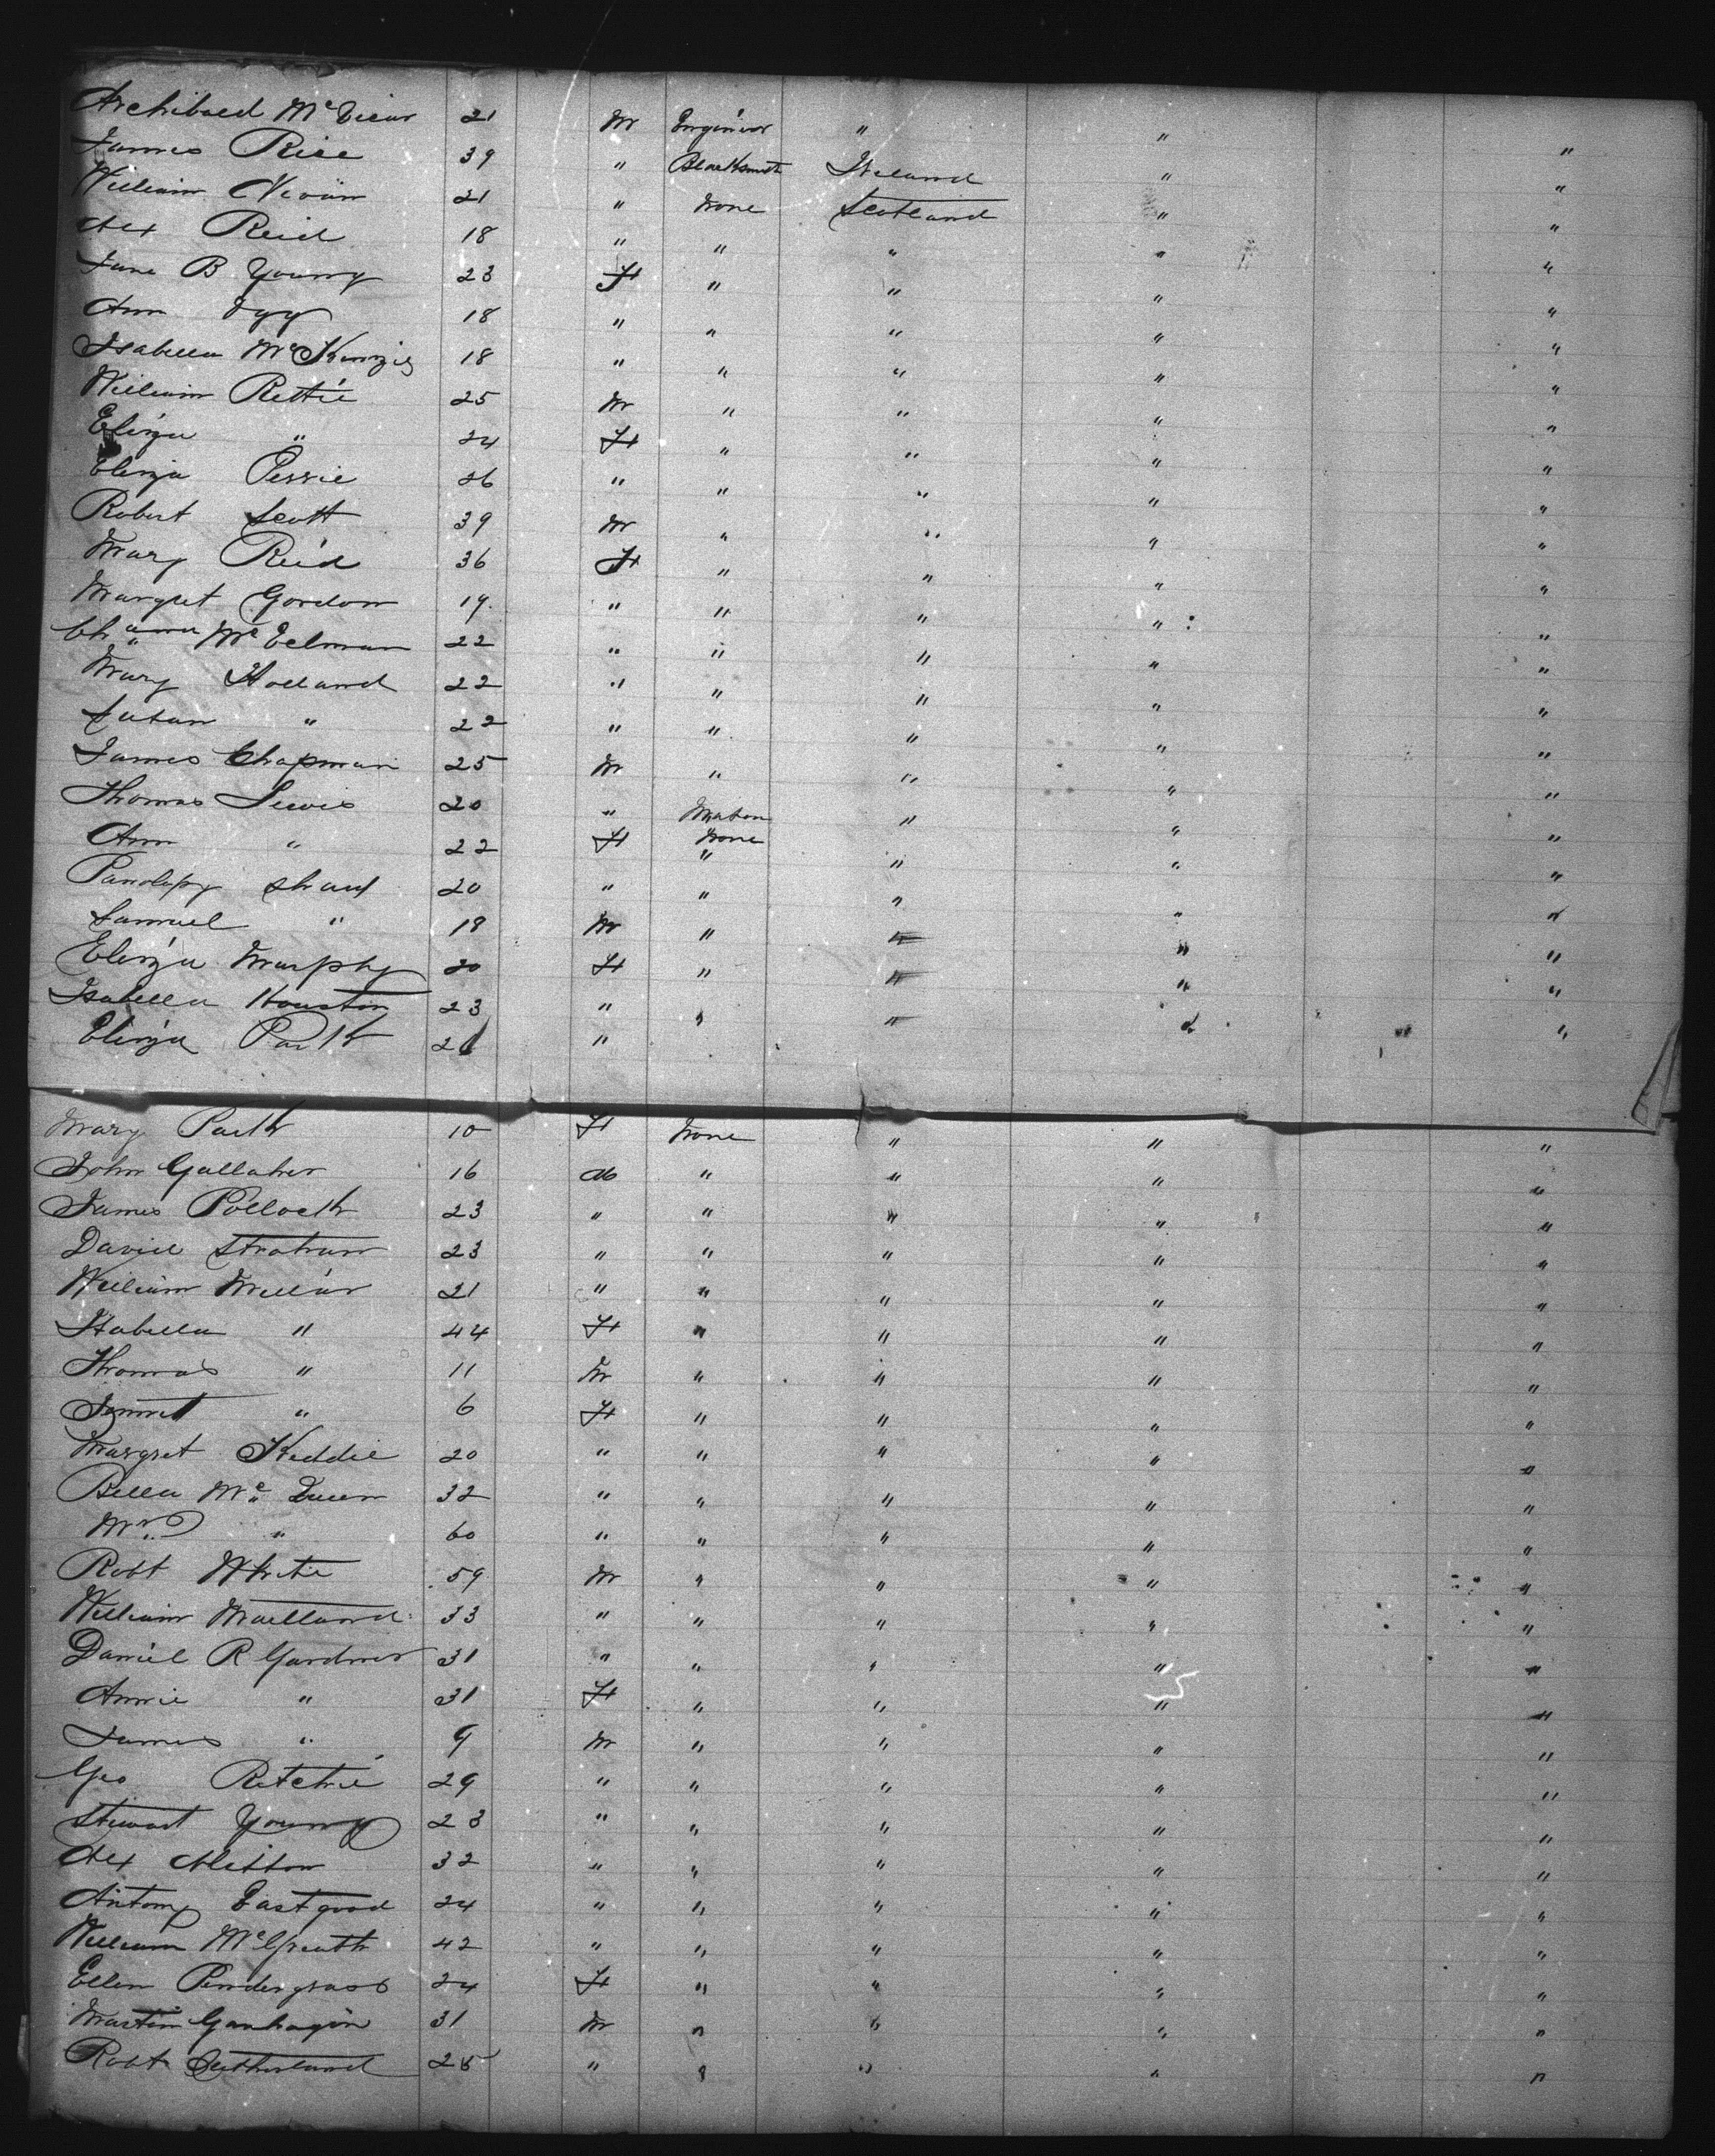 Archibald Mc Vicar 21 M Engineer " " "
James Rice 39 " Blacksmith Ireland " "
William Nivin 21 " None Scotland " "
Alex Reid 18 " " " " "
Jane B Young 23 F " " " "
Ann 18 " " " " "
Isabella McKenzie 18 " " " " "
William Rettie 25 M " " " "
Eliza " 24 F " " " "
Eliza Pessie 26 " " " " "
Robert Scott 39 M " " " "
Mary Reid 36 F " " " "
Margret Gordon 19 " " " " "
Mc 22 " " " " "
Mary Holland 22 " " " " "
Susan " 22 " " " " "
James Chapman 25 M " " " "
Thomas Lewis 20 " Mason " " "
Ann " 22 F None " " "
Panolapy Shaw 20 " " " " "
Samuel " 18 M " " " "
Eliza Murphy 20 F " " " "
Isabella Houston 23 " " " " "
Eliza Park "
Mary Park 10 F None " " "
John Gallaher 16 M " " " "
James Pollock 23 " " " " "
David 23 " " " " "
William Millar 21 " " " " "
Isabella " 44 F " " " "
Thomas " 11 M " " " "
Jannet " 6 F " " " "
Margret Keddie 20 " " " " "
Bella Mc Queen 32 " " " " "
Mrs " 60 " " " " "
Robt White 59 M " " " "
William Maitland 33 " " " " "
Daniel R Gardner 31 " " " " "
Annie " 31 F " " " "
James " 9 M " " " "
Geo Ritchie 29 " " " " "
Stewart Young 23 " " " " "
Alex 32 " " " " "
Antony Eastgood 24 " " " " "
William McGrath 42 " " " " "
Ellen Pendergrass 24 F " " " "
Martin 31 M " " " "
Robt Sutherland 25 " " " " "